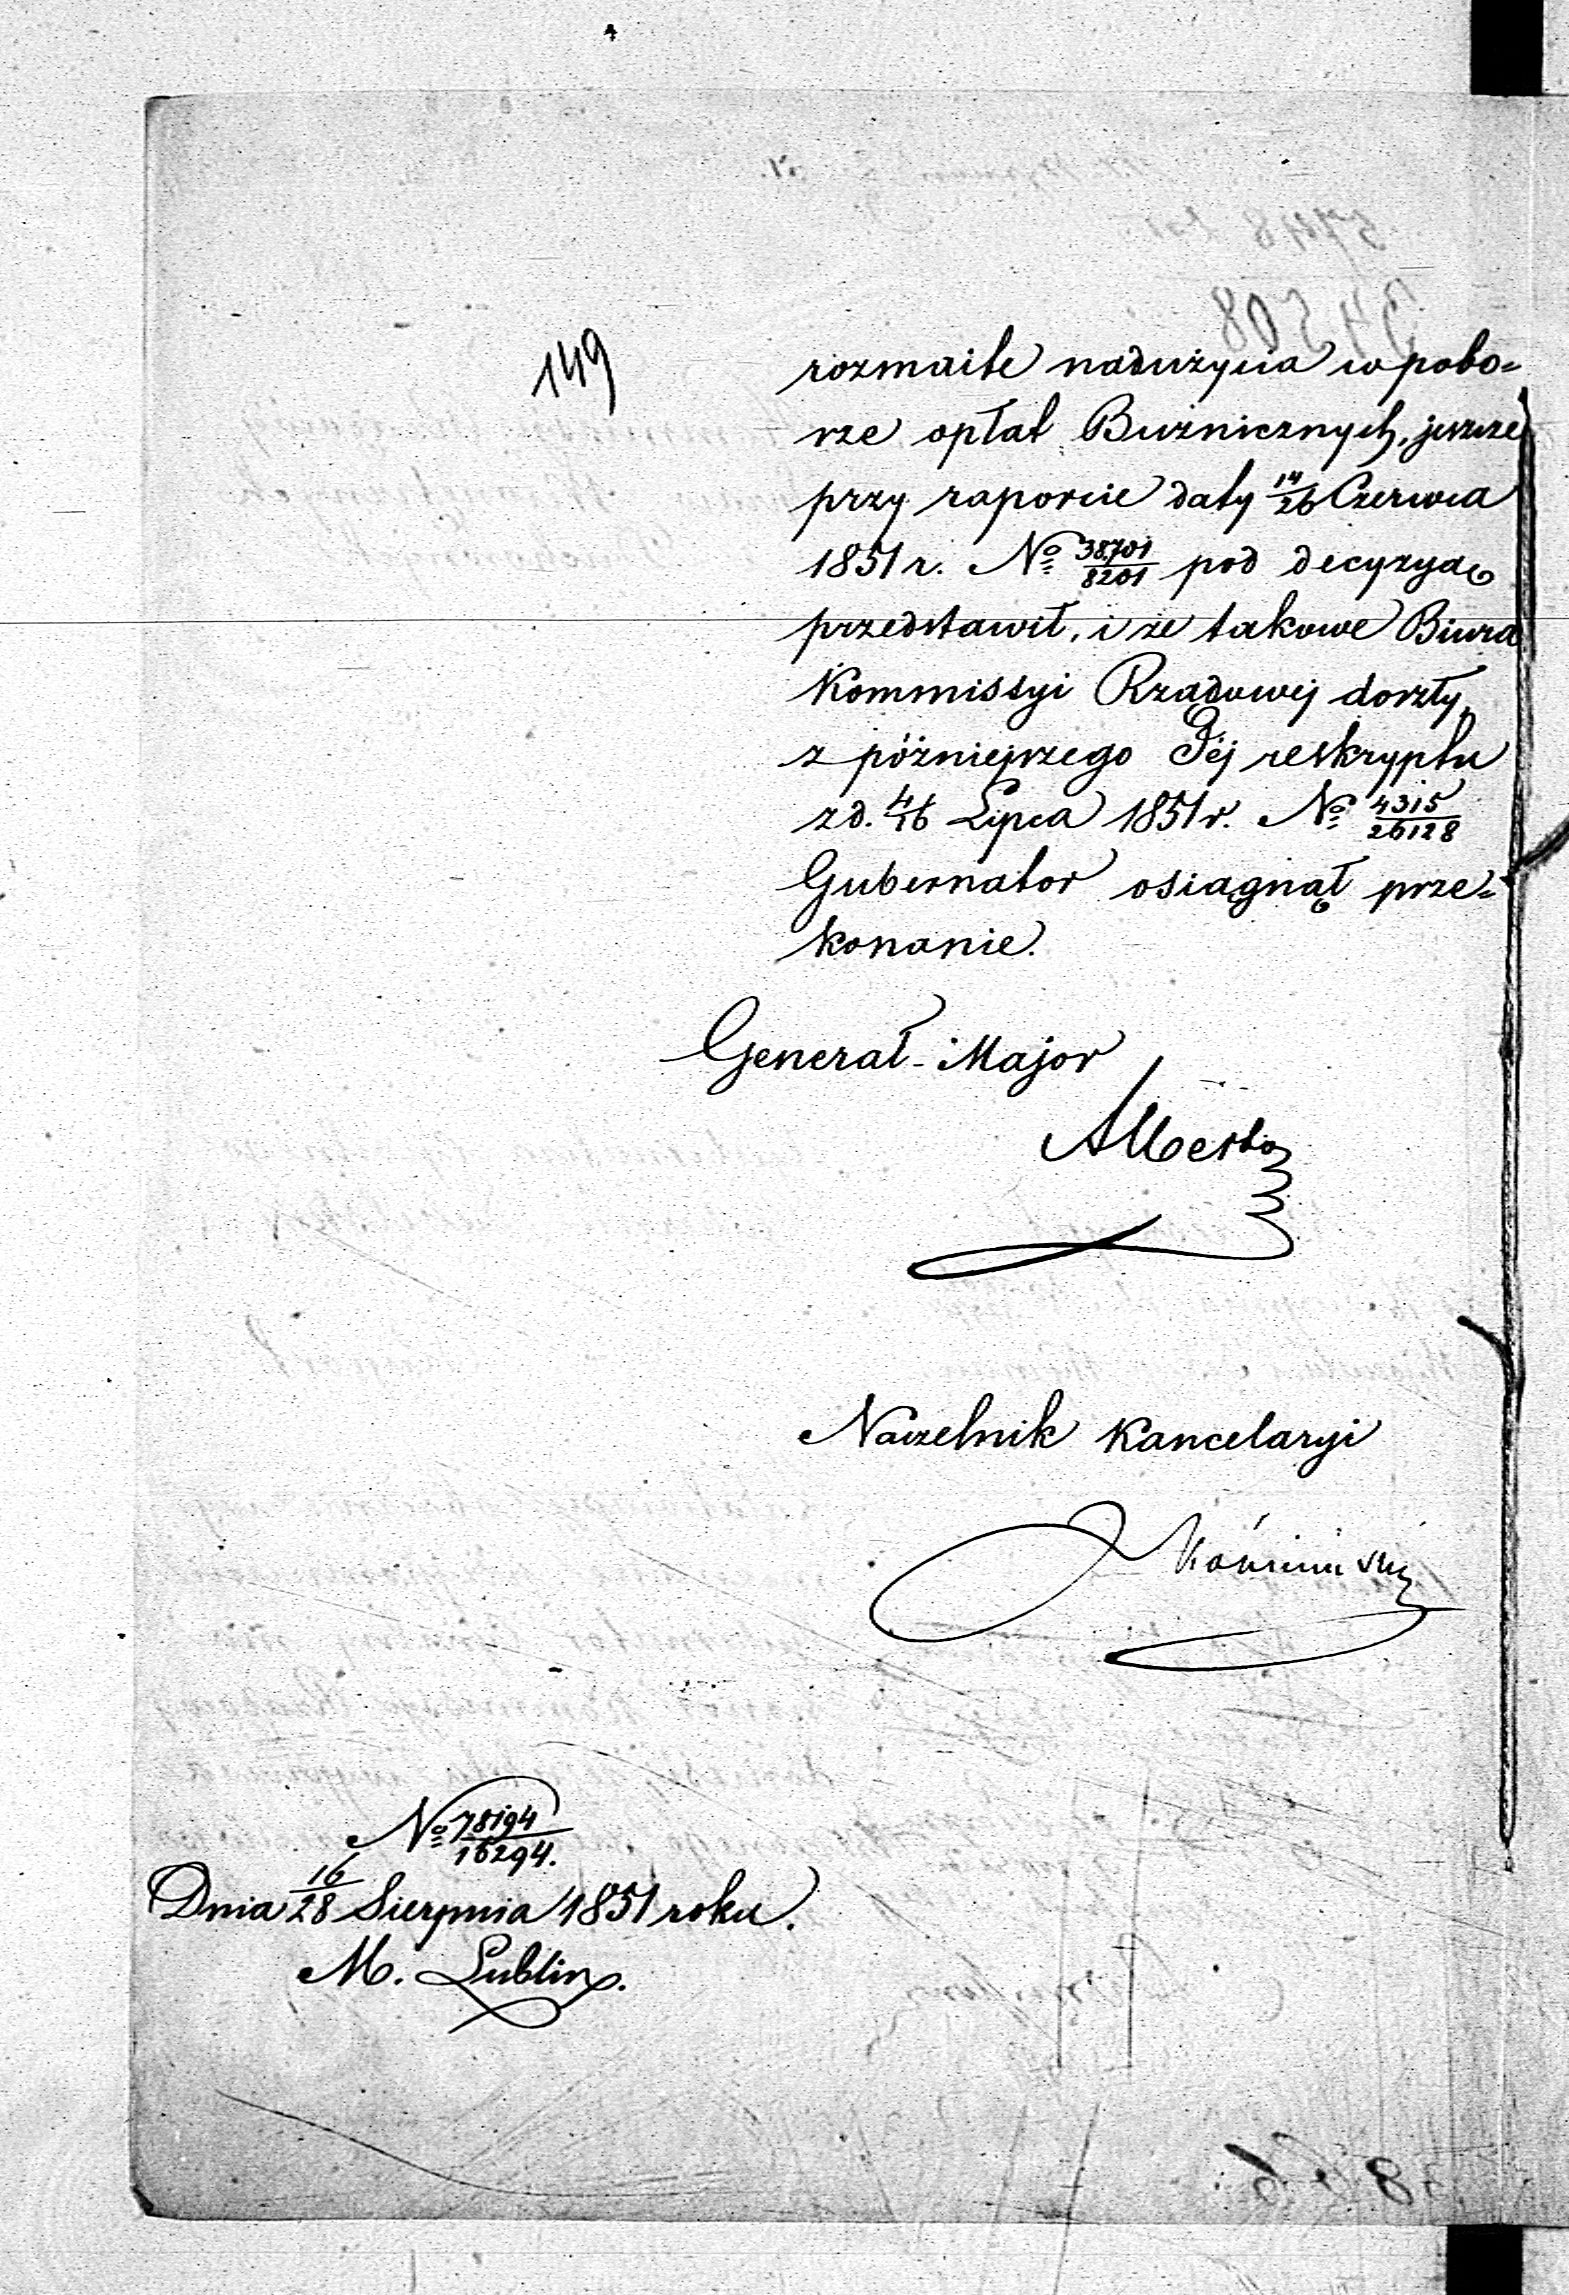 149
rozmaite nadużycia w pobo=
rze opłat Bużnicznych, jeszcze
przy raporcie daty 14/26 Czerwca
1851 r. No 38701/8201 pod decyzyą
przedstawił, i że takowe Biura
Kommissyi Rządowej doszły,
z późniejszego Jéj reskryptu
z d. 4/16 Lipca 1851 r. No 4315/26128
Gubernator osiągnął prze=
konanie.
Generał-Major
Albertow
Naczelnik Kancelaryi
No 78194/16294.
Dnia 16/28 Sierpnia 1851 roku.
M. Lublin.